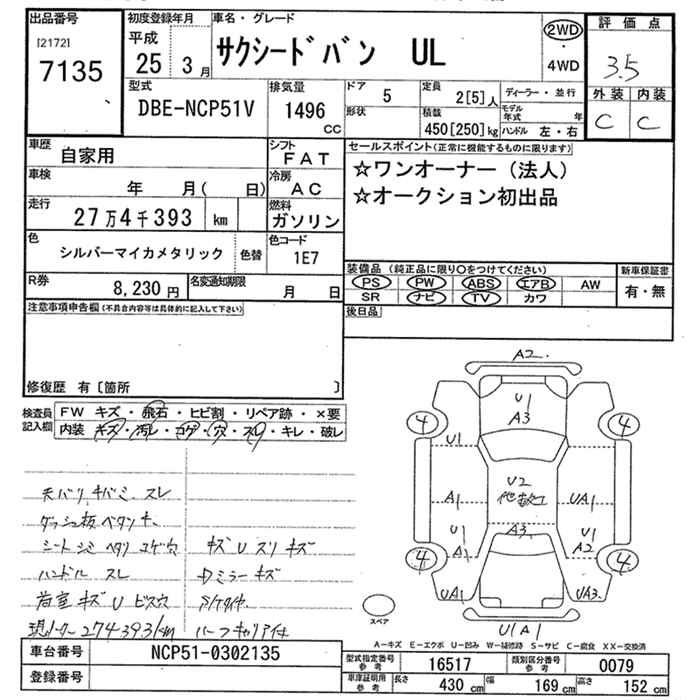 出品番号
[2172]
7135
初度登録年月
平成
25 3月
車名・グレード
サクシードバン UL
2WD
・
4WD
評価点
3.5
外装 内装
C C
型式
DBE-NCP51V
排気量
1496
CC
ドア
5
形状
定員
2[5]人
積載
450[250]kg
ディーラー・並行
モデル年式 年
ハンドル 左・右
車歴
自家用
シフト
FAT
車検
年 月( 日)
冷房
AC
走行
27万4千393 km
燃料
ガソリン
色
シルバーマイカメタリック
色替
色コード
1E7
R券
8,230円
名変通知期限
月 日
セールスポイント(正常に機能するものに限ります)
☆ワンオーナー(法人)
☆オークション初出品
装備品(純正品に限り○をつけてください)
新車保証書
PS PW ABS エアB AW
有・無
SR ナビ TV カワ
後日品
注意事項申告欄(不具合内容等は具体的に記入して下さい)
修復歴 有〔箇所 〕
検査員記入欄
FW キズ・飛石・ヒビ割・リペア跡・×要
内装 キズ・汚レ・コゲ・穴・スレ・キレ・破レ
天バリ キバミ スレ
ダッシュ板ベタツキ
シート シミ ヘタリ コゲ穴
ハンドル スレ
荷室 キズ U ビス穴
現メーター 274393km
キズ U スリキズ
ミラーキズ
A2
U1
A3
4
4
U1
U2
A1
UA1
A3
U1
A2
U1
A2
4
4
UA1
UA3
U1A1
スペア
A-キズ E-エクボ U-凹み W-補修跡 S-サビ C-腐食 XX-交換済
車台番号
NCP51-0302135
登録番号
型式指定番号 参考
16517
類別区分番号 参考
0079
車庫証明用 参考
長さ 430 cm
幅 169 cm
高さ 152 cm